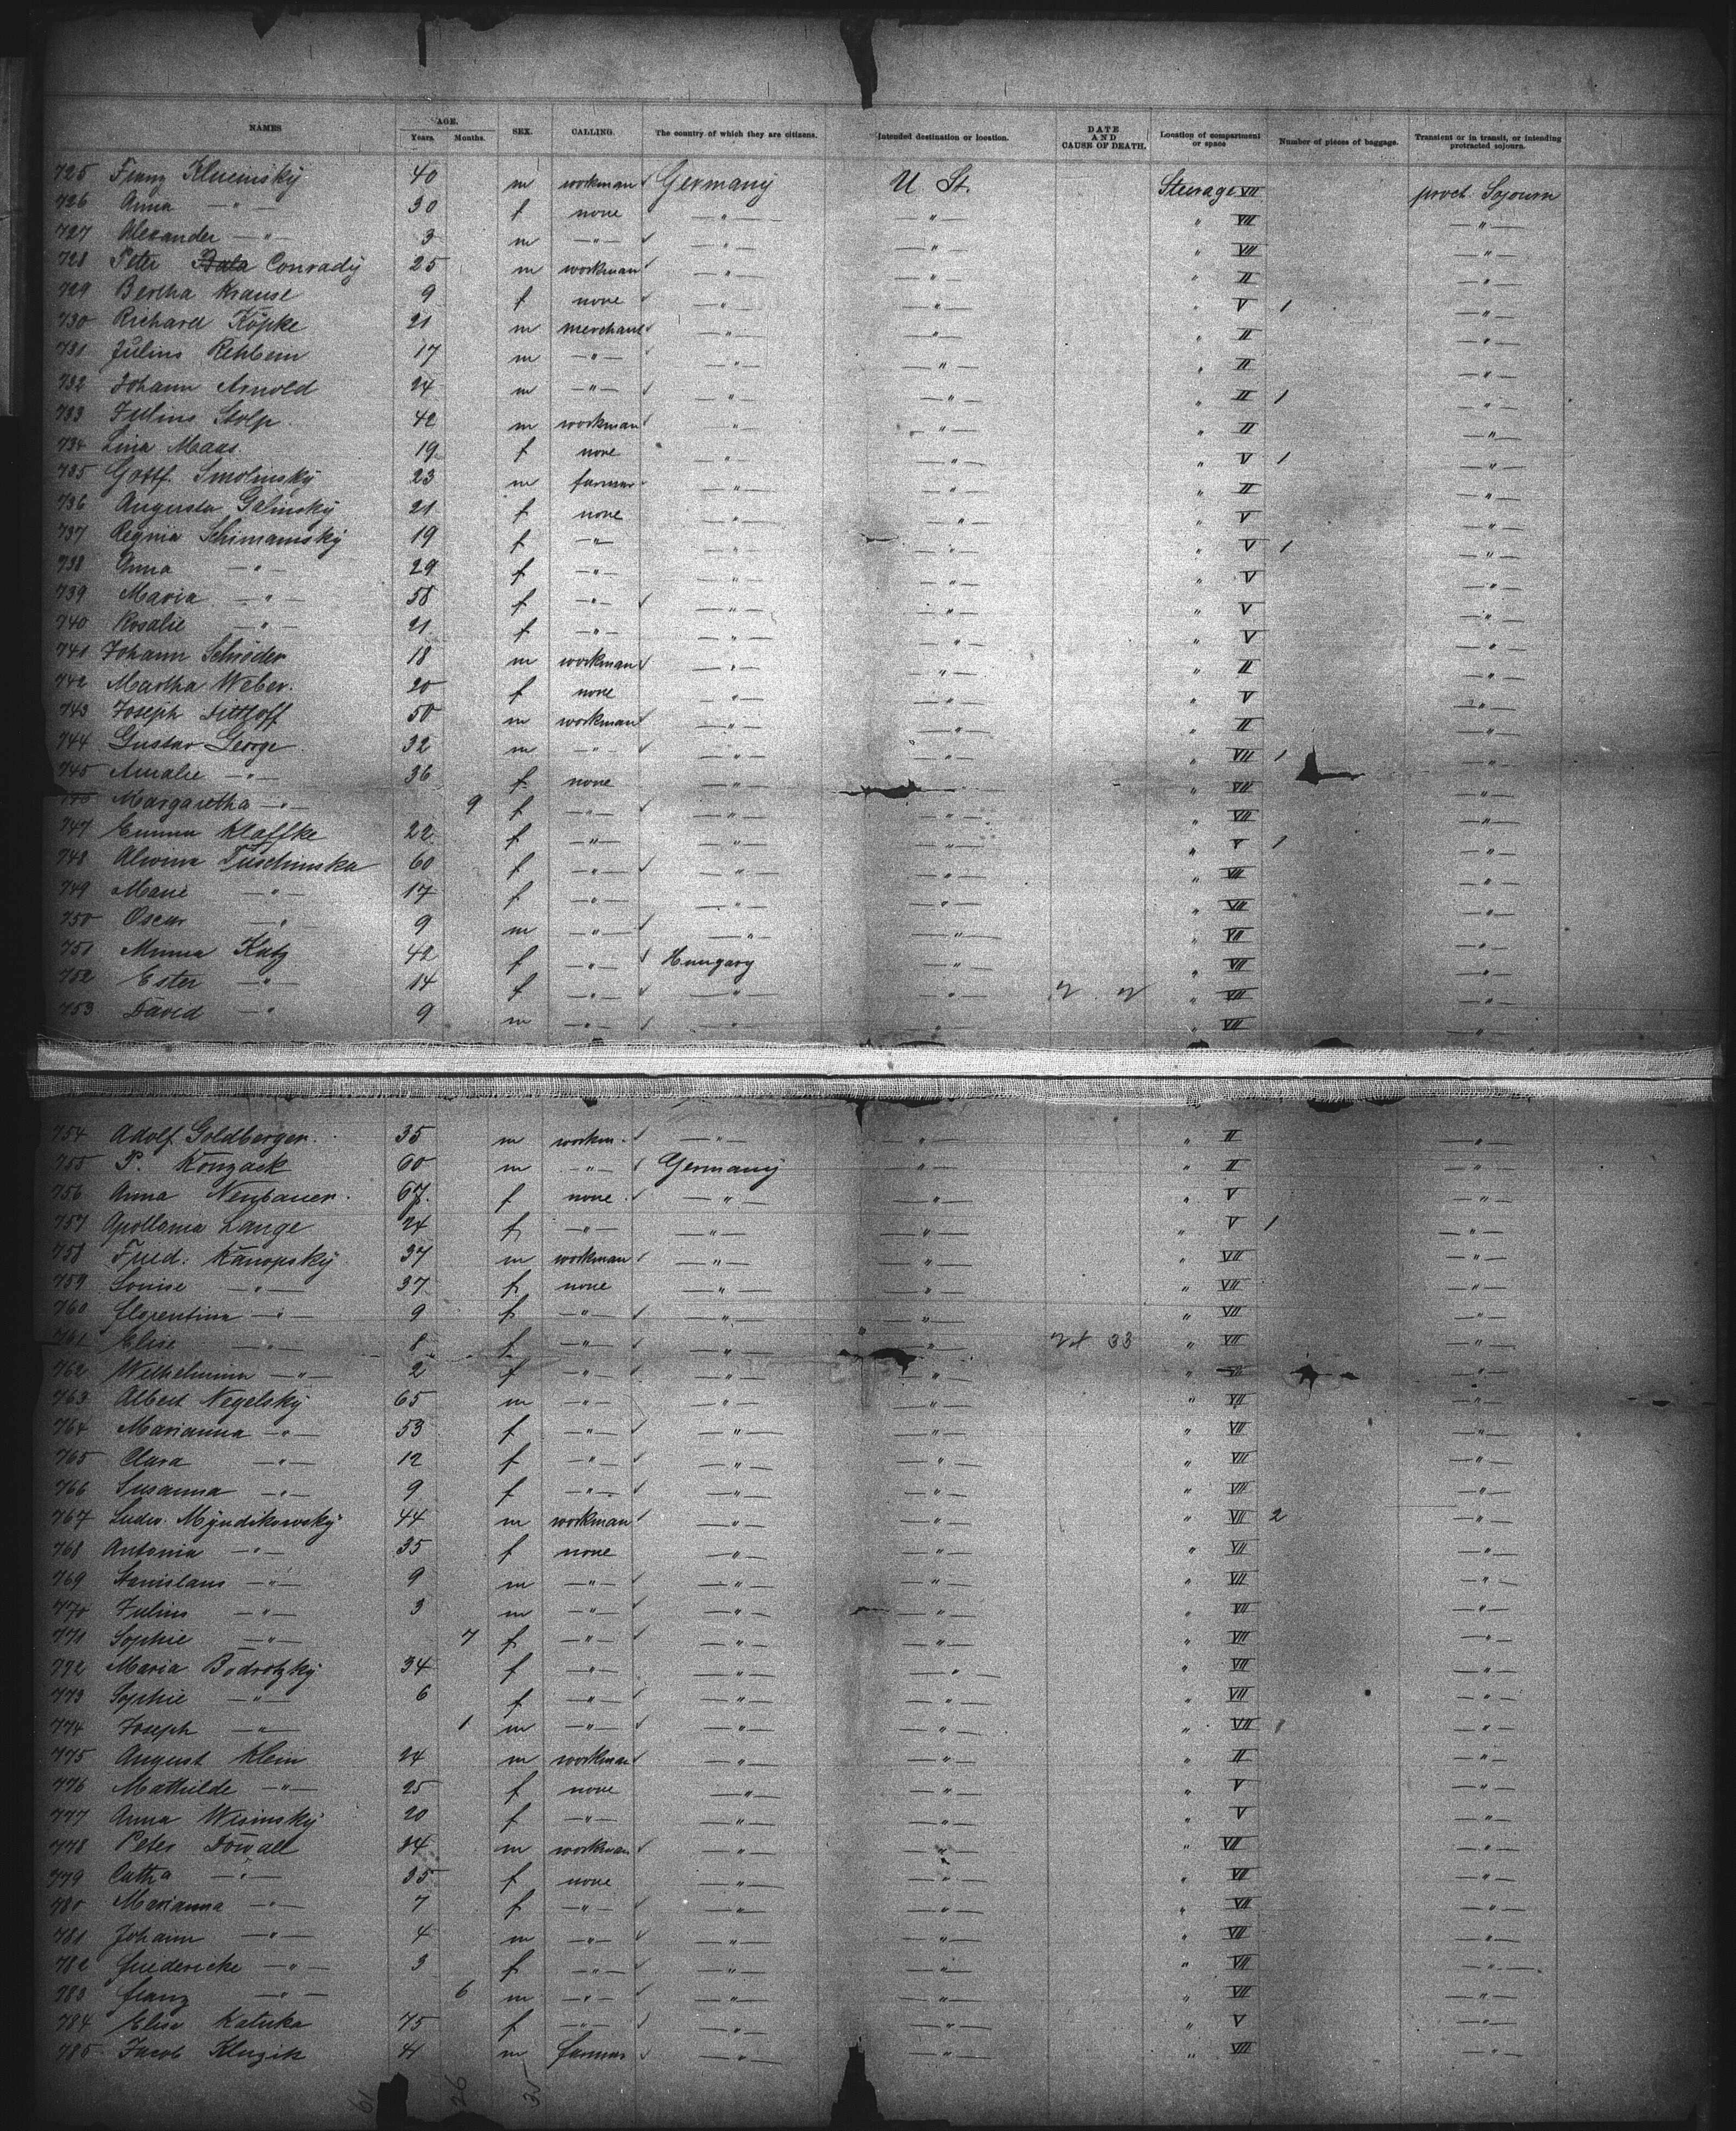 NAMES AGE. Years. Months. SEX. CALLING. The country of which they are citizens. Intended destination or location. DATE AND CAUSE OF DEATH. Location of compartment or space Number of pieces of baggage. Transient or in transit, or intending protracted sojourn.
725 Franz 40 m workman Germany U St. Steerage VII prot. Sojourn
726 Anna —"— 30 f none —"— —"— " VII —"—
727 Alexander —"— 3 m —"— —"— —"— " VII —"—
728 Peter Conrady 25 m workman —"— —"— " II —"—
729 Bertha Krause 9 f none —"— —"— " V 1 —"—
730 Richard Köpke 21 m merchant —"— —"— " II —"—
731 Julius Rehbein 17 m —"— —"— —"— " II —"—
732 Johann Arnold 24 m —"— —"— —"— " II 1 —"—
733 Julius Stolp 42 m workman —"— —"— " II —"—
734 Lina Maas. 19 f none —"— —"— " V 1 —"—
735 Gottf. Smolinsky 23 m farmer —"— —"— " II —"—
736 Augusta Galinsky 21 f none —"— —"— " V —"—
737 Regina Schimansky 19 f —"— —"— —"— " V 1 —"—
738 Anna —"— 29 f —"— —"— —"— " V —"—
739 Maria —"— 58 f —"— —"— —"— " V —"—
740 Rosalie —"— 21 f —"— —"— —"— " V —"—
741 Johann Schröder 18 m workman —"— —"— " II —"—
742 Martha Weber. 20 f none —"— —"— " V —"—
743 Joseph Dittloff 50 m workman —"— —"— " II —"—
744 Gustav George 32 m —"— —"— —"— " VII 1 —"—
745 Amalie —"— 36 f none —"— —"— " VII —"—
Margaretha —"— 9 f —"— —"— —"— " VII —"—
747 Emma Klaffke 22 f —"— —"— —"— " V 1 —"—
748 Alwina Tuschinska 60 f —"— —"— —"— " VII —"—
749 Marie —"— 17 f —"— —"— —"— " VII —"—
750 Oscar —"— 9 m —"— —"— —"— " VII —"—
751 Minna Katz 42 f —"— Hungary —"— " VII —"—
752 Ester —"— 14 f —"— —"— —"— " VII —"—
753 David —"— 9 m —"— —"— " " VII —"—
754 Adolf Goldberger. 35 m workm. —"— " " II —"—
755 P. Konzack 60 m —"— Germany —"— " II —"—
756 Anna Neubauer. 67. f none —"— —"— " V —"—
757 Apollonia Lange 24 f —"— —"— —"— " V 1 —"—
758 Fried. Kanopsky 37 m workman —"— —"— " VII —"—
759 Louise —"— 37 f none —"— —"— " VII —"—
760 Florentina —"— 9 f —"— —"— —"— " VII —"—
761 Elise —"— 8 f —"— —"— —"— 33 " VII —"—
762 Wilhelmina —"— 2 f —"— —"— —"— " VII —"—
763 Albert Negelsky 65 m —"— —"— —"— " VII —"—
764 Marianna —"— 53 f —"— —"— —"— " VII —"—
765 Clara —"— 12 f —"— —"— —"— " VII —"—
766 Susanna —"— 9 f —"— —"— —"— " VII —"—
767 Ludw. Myndikowsky 44 m workman —"— —"— " VII 2 —"—
768 Antonia —"— 35 f none —"— —"— " VII —"—
769 Stanislaus —"— 9 m —"— —"— —"— " VII —"—
770 Julius —"— 3 m —"— —"— —"— " VII —"—
771 Sophie —"— 7 f —"— —"— —"— " VII —"—
772 Maria Bodrotzky 34 f —"— —"— —"— " VII —"—
773 Sophie —"— 6 f —"— —"— —"— " VII —"—
774 Joseph —"— 1 m —"— —"— —"— " VII —"—
775 August Klein 24 m workman —"— —"— " II —"—
776 Mathilde —"— 25 f none —"— —"— " V —"—
777 Anna Wisinsky 20 f —"— —"— —"— " V —"—
778 Peter Dowall 34 m workman —"— —"— " VII —"—
779 Catha —"— 35 f none —"— —"— " VII —"—
780 Marianna —"— 7 f —"— —"— —"— " VII —"—
781 Johann —"— 4 m —"— —"— —"— " VII —"—
782 Friedericke —"— 3 f —"— —"— —"— " VII —"—
783 Franz —"— 6 m —"— —"— —"— " VII —"—
784 Elisa Katuka 75 f —"— —"— —"— " V —"—
785 Jacob Kluzik m farmer —"— —"— " VIII —"—
61 26 35